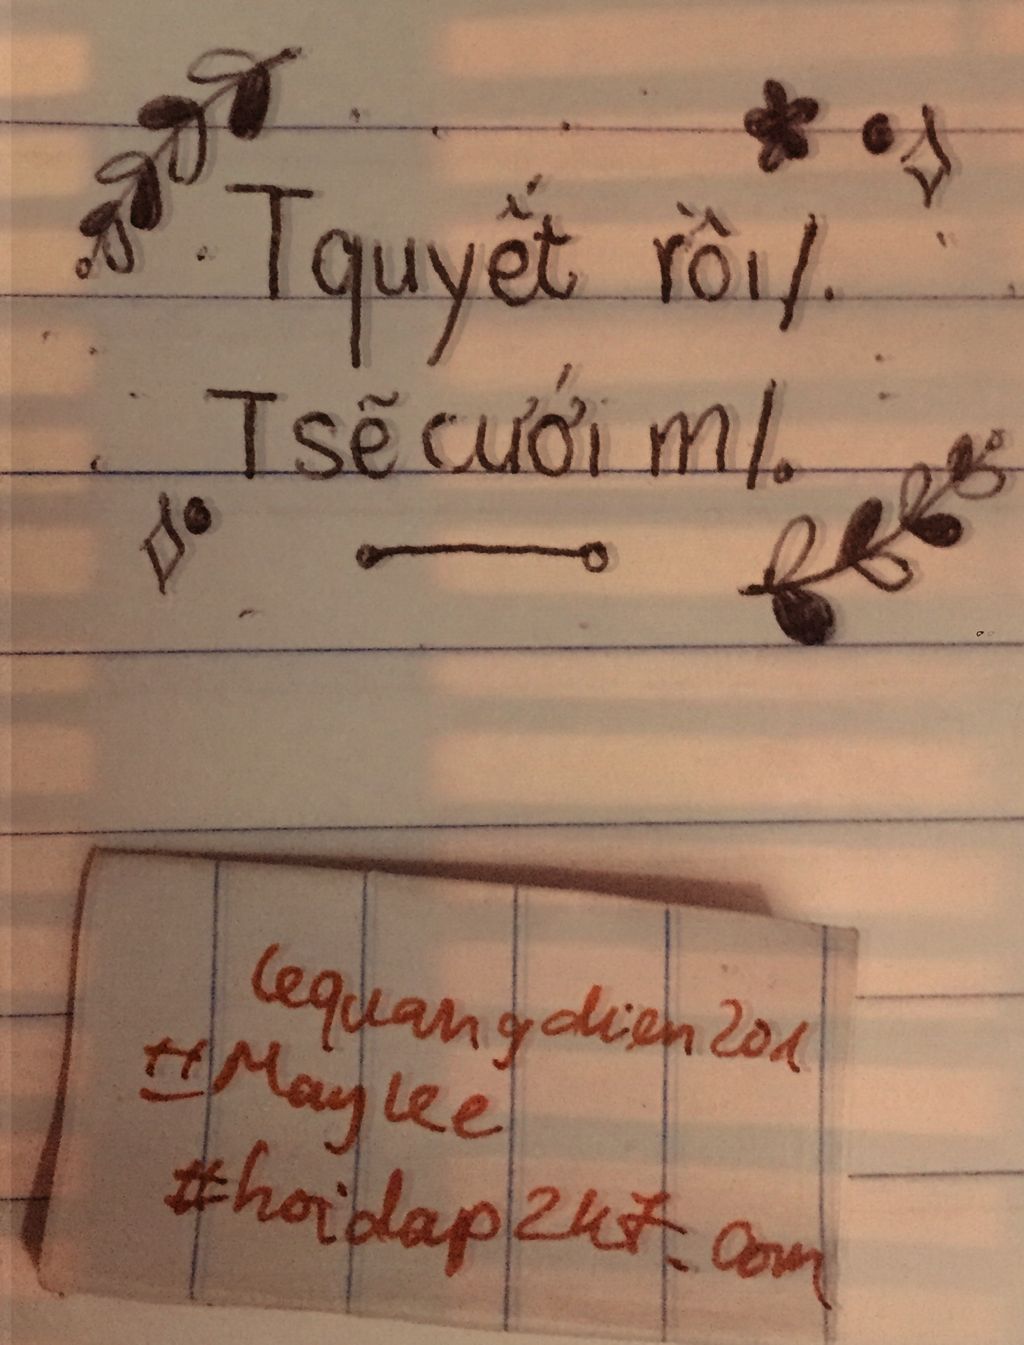 T quyết rồi /.
T sẽ cưới m /.
lequangdien201
#MayLee
#hoidap247.com